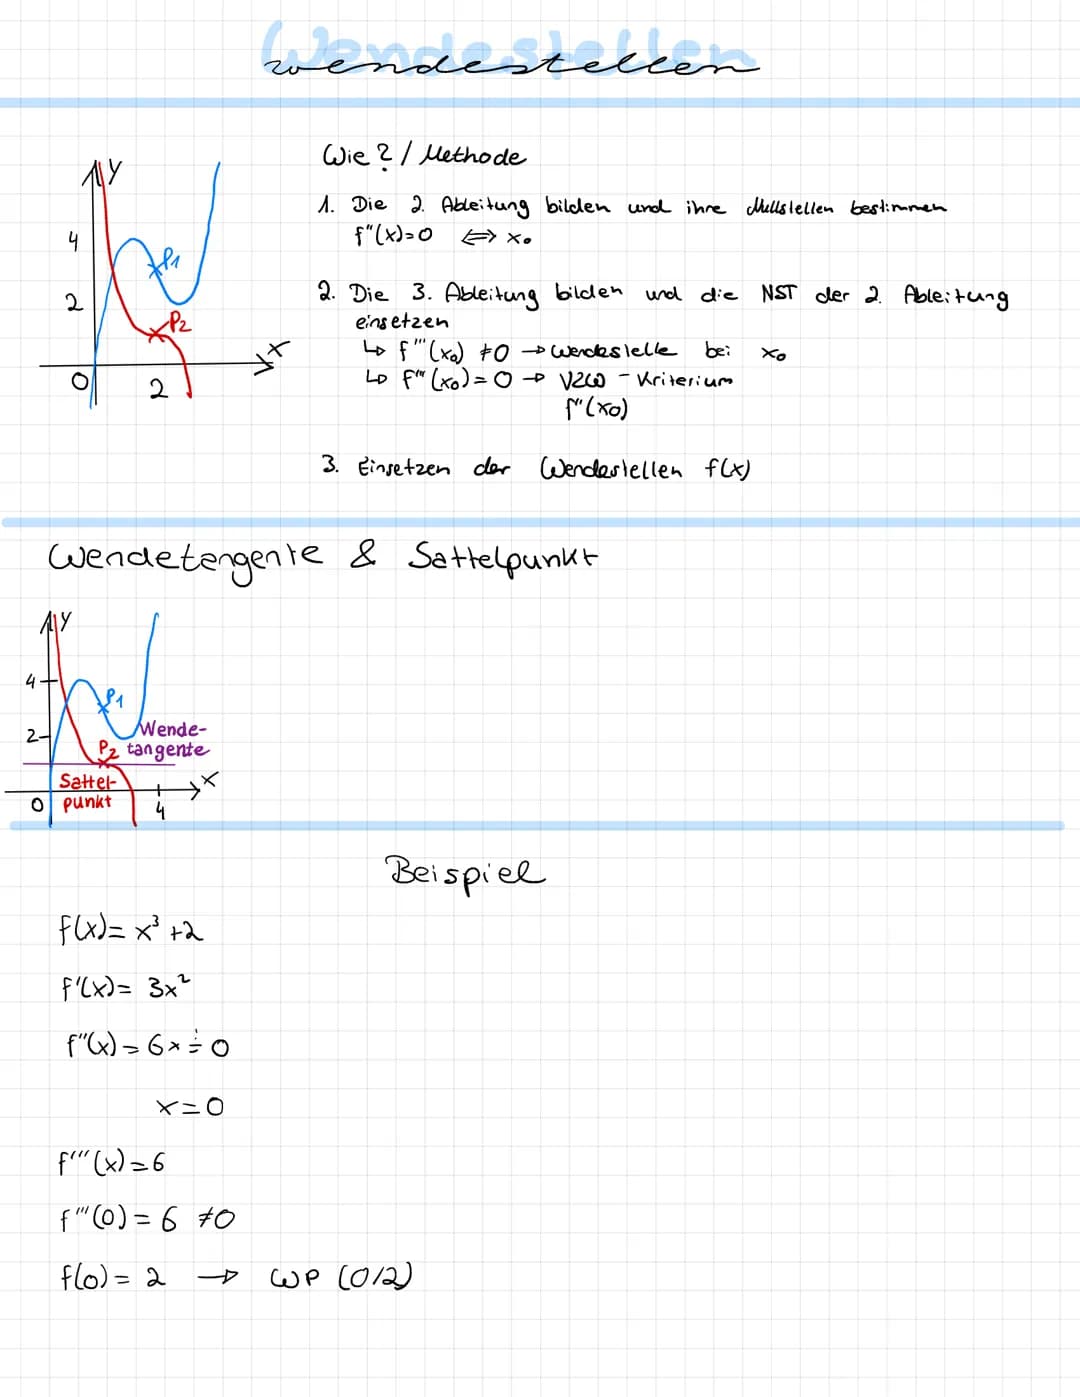 Wendestellen
wendestellen
Wie? / Methode
1. Die 2. Ableitung bilden und ihre Nullstellen bestimmen
f"(x)=0 ⇔ x₀
2. Die 3. Ableitung bilden und die NST der 2. Ableitung
einsetzen
↳ f'''(x₀) ≠0 → Wendestelle bei x₀
↳ f'''(x₀)=0 → VZW-Kriterium
f"(x₀)
3. Einsetzen der Wendestellen f(x)
y
4
2
0
2
x
P1
P2
Wendetangente & Sattelpunkt
y
4
P1
2
Wende-
P2 tangente
Sattel-
punkt
x
0
4
Beispiel
f(x)= x³ +2
f'(x)= 3x²
f"(x)=6x ≐ 0
x=0
f'''(x)=6
f'''(0)=6 ≠0
f(0)=2 → WP (0/2)